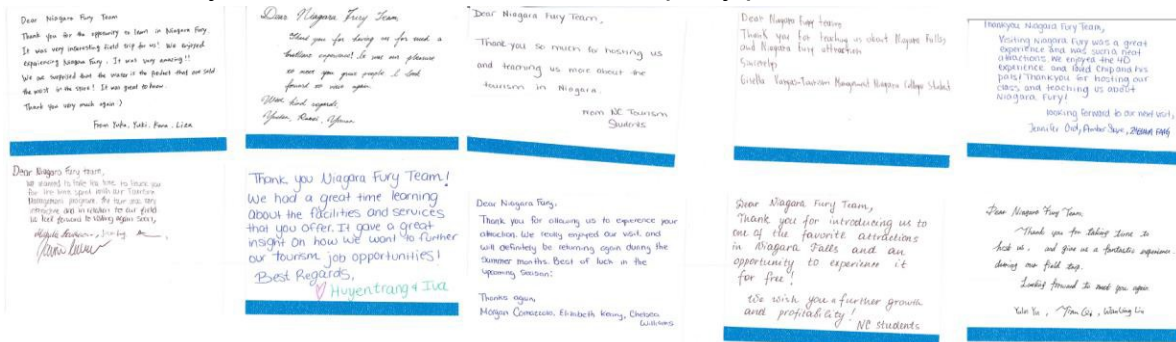 Dear Niagara Fury Team
Thank you for the opportunity to learn in Niagara Fury.
It was very interesting field trip for us! We enjoyed
experiencing Niagara Fury. It was very amazing!!
We are surprised that the water is the product that are sold
the most in the store! It was great to know.
Thank you very much again :)
From Yuka, Yuki, Liza
Dear Niagara Fury Team,
Thank you for having us for such a
experience! It was our pleasure
to meet you great people. I look
forward to meet again
kind regards,
Dear Niagara Fury Team,
Thank you so much for hosting us
and teaching us more about the
tourism in Niagara.
From NC Tourism
Students
Dear Niagara Fury team,
Thank you for teaching us about Niagara Falls,
and Niagara Fury attraction
Sincerely,
Vargas-Tourism Management Niagara College Student
Thankyou Niagara Fury Team,
Visiting Niagara Fury was a great
experience and was such a neat
attractions. We enjoyed the 4D
experience and loved Chip and his
pals! Thankyou for hosting our
class, and teaching us about
Niagara Fury!
looking forward to our next visit,
Jennifer
Dear Niagara Fury team,
We wanted to take the time to thank you
for the time spent with our Tourism
Management program. The tour was very
interactive and in relation to our field
we look forward to visiting again soon,
Thank you Niagara Fury Team!
We had a great time learning
about the facilities and services
that you offer. It gave a great
insight on how we want to further
our tourism job opportunities!
Best Regards,
Huyentrang & Iva
Dear Niagara Fury,
Thank you for allowing us to experience your
attraction. We really enjoyed our visit and
will definitely be returning again during the
summer months. Best of luck in the
upcoming season!
Thanks again,
Morgan Elizabeth Chelsea
Williams
Dear Niagara Fury Team,
Thank you for introducing us to
one of the favorite attractions
in Niagara Falls and an
opportunity to experience it
for free!
We wish you a further growth
and profitability!
NC students
Dear Niagara Fury Team,
Thank you for taking time to
host us, and give us a fantastic experience
during our field trip.
Looking forward to meet you again